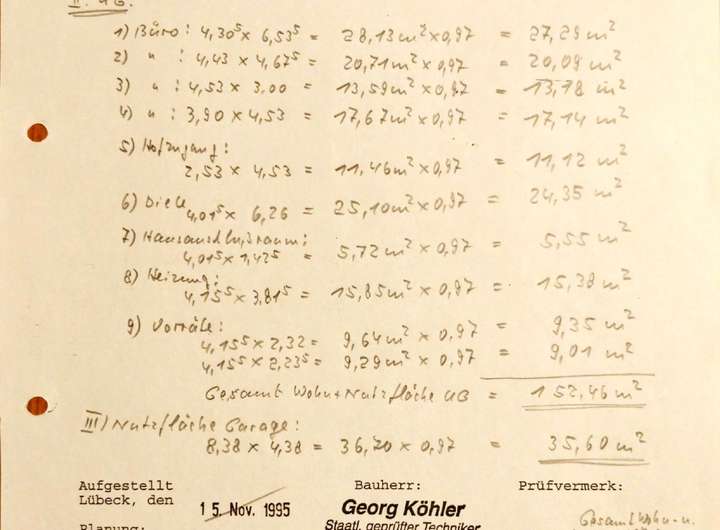 II. UG.
1) Büro: 4,30⁵ x 6,53⁵ = 28,13m² x 0,97 = 27,29 m²
2) " : 4,43 x 4,67⁵ = 20,71m² x 0,97 = 20,09 m²
3) " : 4,53 x 3,00 = 13,59m² x 0,97 = 13,18 m²
4) " : 3,90 x 4,53 = 17,67m² x 0,97 = 17,14 m²
5) Hofzugang:
2,53 x 4,53 = 11,46m² x 0,97 = 11,12 m²
6) Diele
4,01⁵ x 6,26 = 25,10m² x 0,97 = 24,35 m²
7) Hausanschlußraum:
4,01⁵ x 1,42⁵ = 5,72m² x 0,97 = 5,55 m²
8) Heizung:
4,15⁵ x 3,81⁵ = 15,85m² x 0,97 = 15,38 m²
9) Vorräte:
4,15⁵ x 2,32 = 9,64m² x 0,97 = 9,35 m²
4,15⁵ x 2,23⁵ = 9,29m² x 0,97 = 9,01 m²
Gesamt Wohn+Nutzfläche UG = 152,46 m²
III) Nutzfläche Garage:
8,38 x 4,38 = 36,70 x 0,97 = 35,60 m²
Aufgestellt Bauherr: Prüfvermerk:
Lübeck, den 15. Nov. 1995 Georg Köhler
Planung: Staatl. geprüfter Techniker
Gesamt Wohn-u.